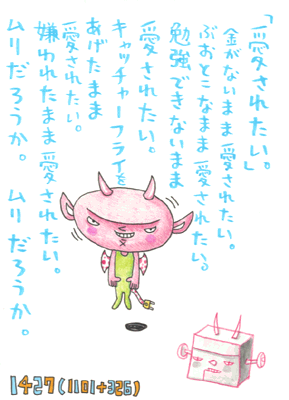 「愛されたい。」
金がないまま愛されたい。
ぶおとこなまま愛されたい。
勉強できないまま
愛されたい。
キャッチャーフライを
あげたまま
愛されたい。
嫌われたまま愛されたい。
ムリだろうか。ムリだろうか。
1427(1101+326)